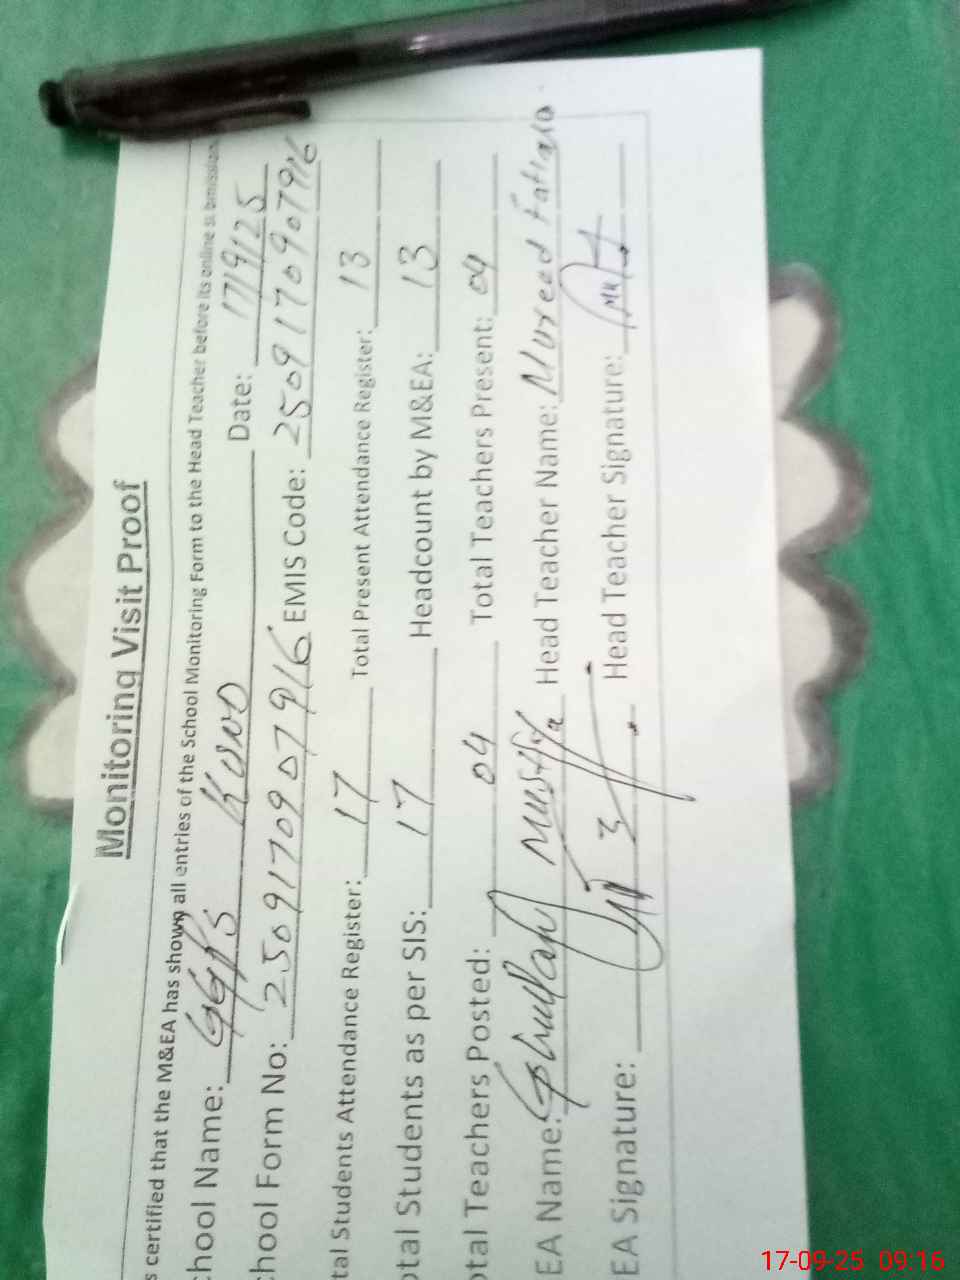 Monitoring Visit Proof
s certified that the M&EA has shown all entries of the School Monitoring Form to the Head Teacher before its online submission.
chool Name: GGPS Date: 17/9/25
chool Form No: 250917090907916 EMIS Code: 250917090907916
tal Students Attendance Register: 17 Total Present Attendance Register: 13
otal Students as per SIS: 17 Headcount by M&EA: 13
otal Teachers Posted: 04 Total Teachers Present: 04
EA Name: Ghullam Mustffa Head Teacher Name: Mureed Fatima
EA Signature: Head Teacher Signature:
17-09-25 09:16